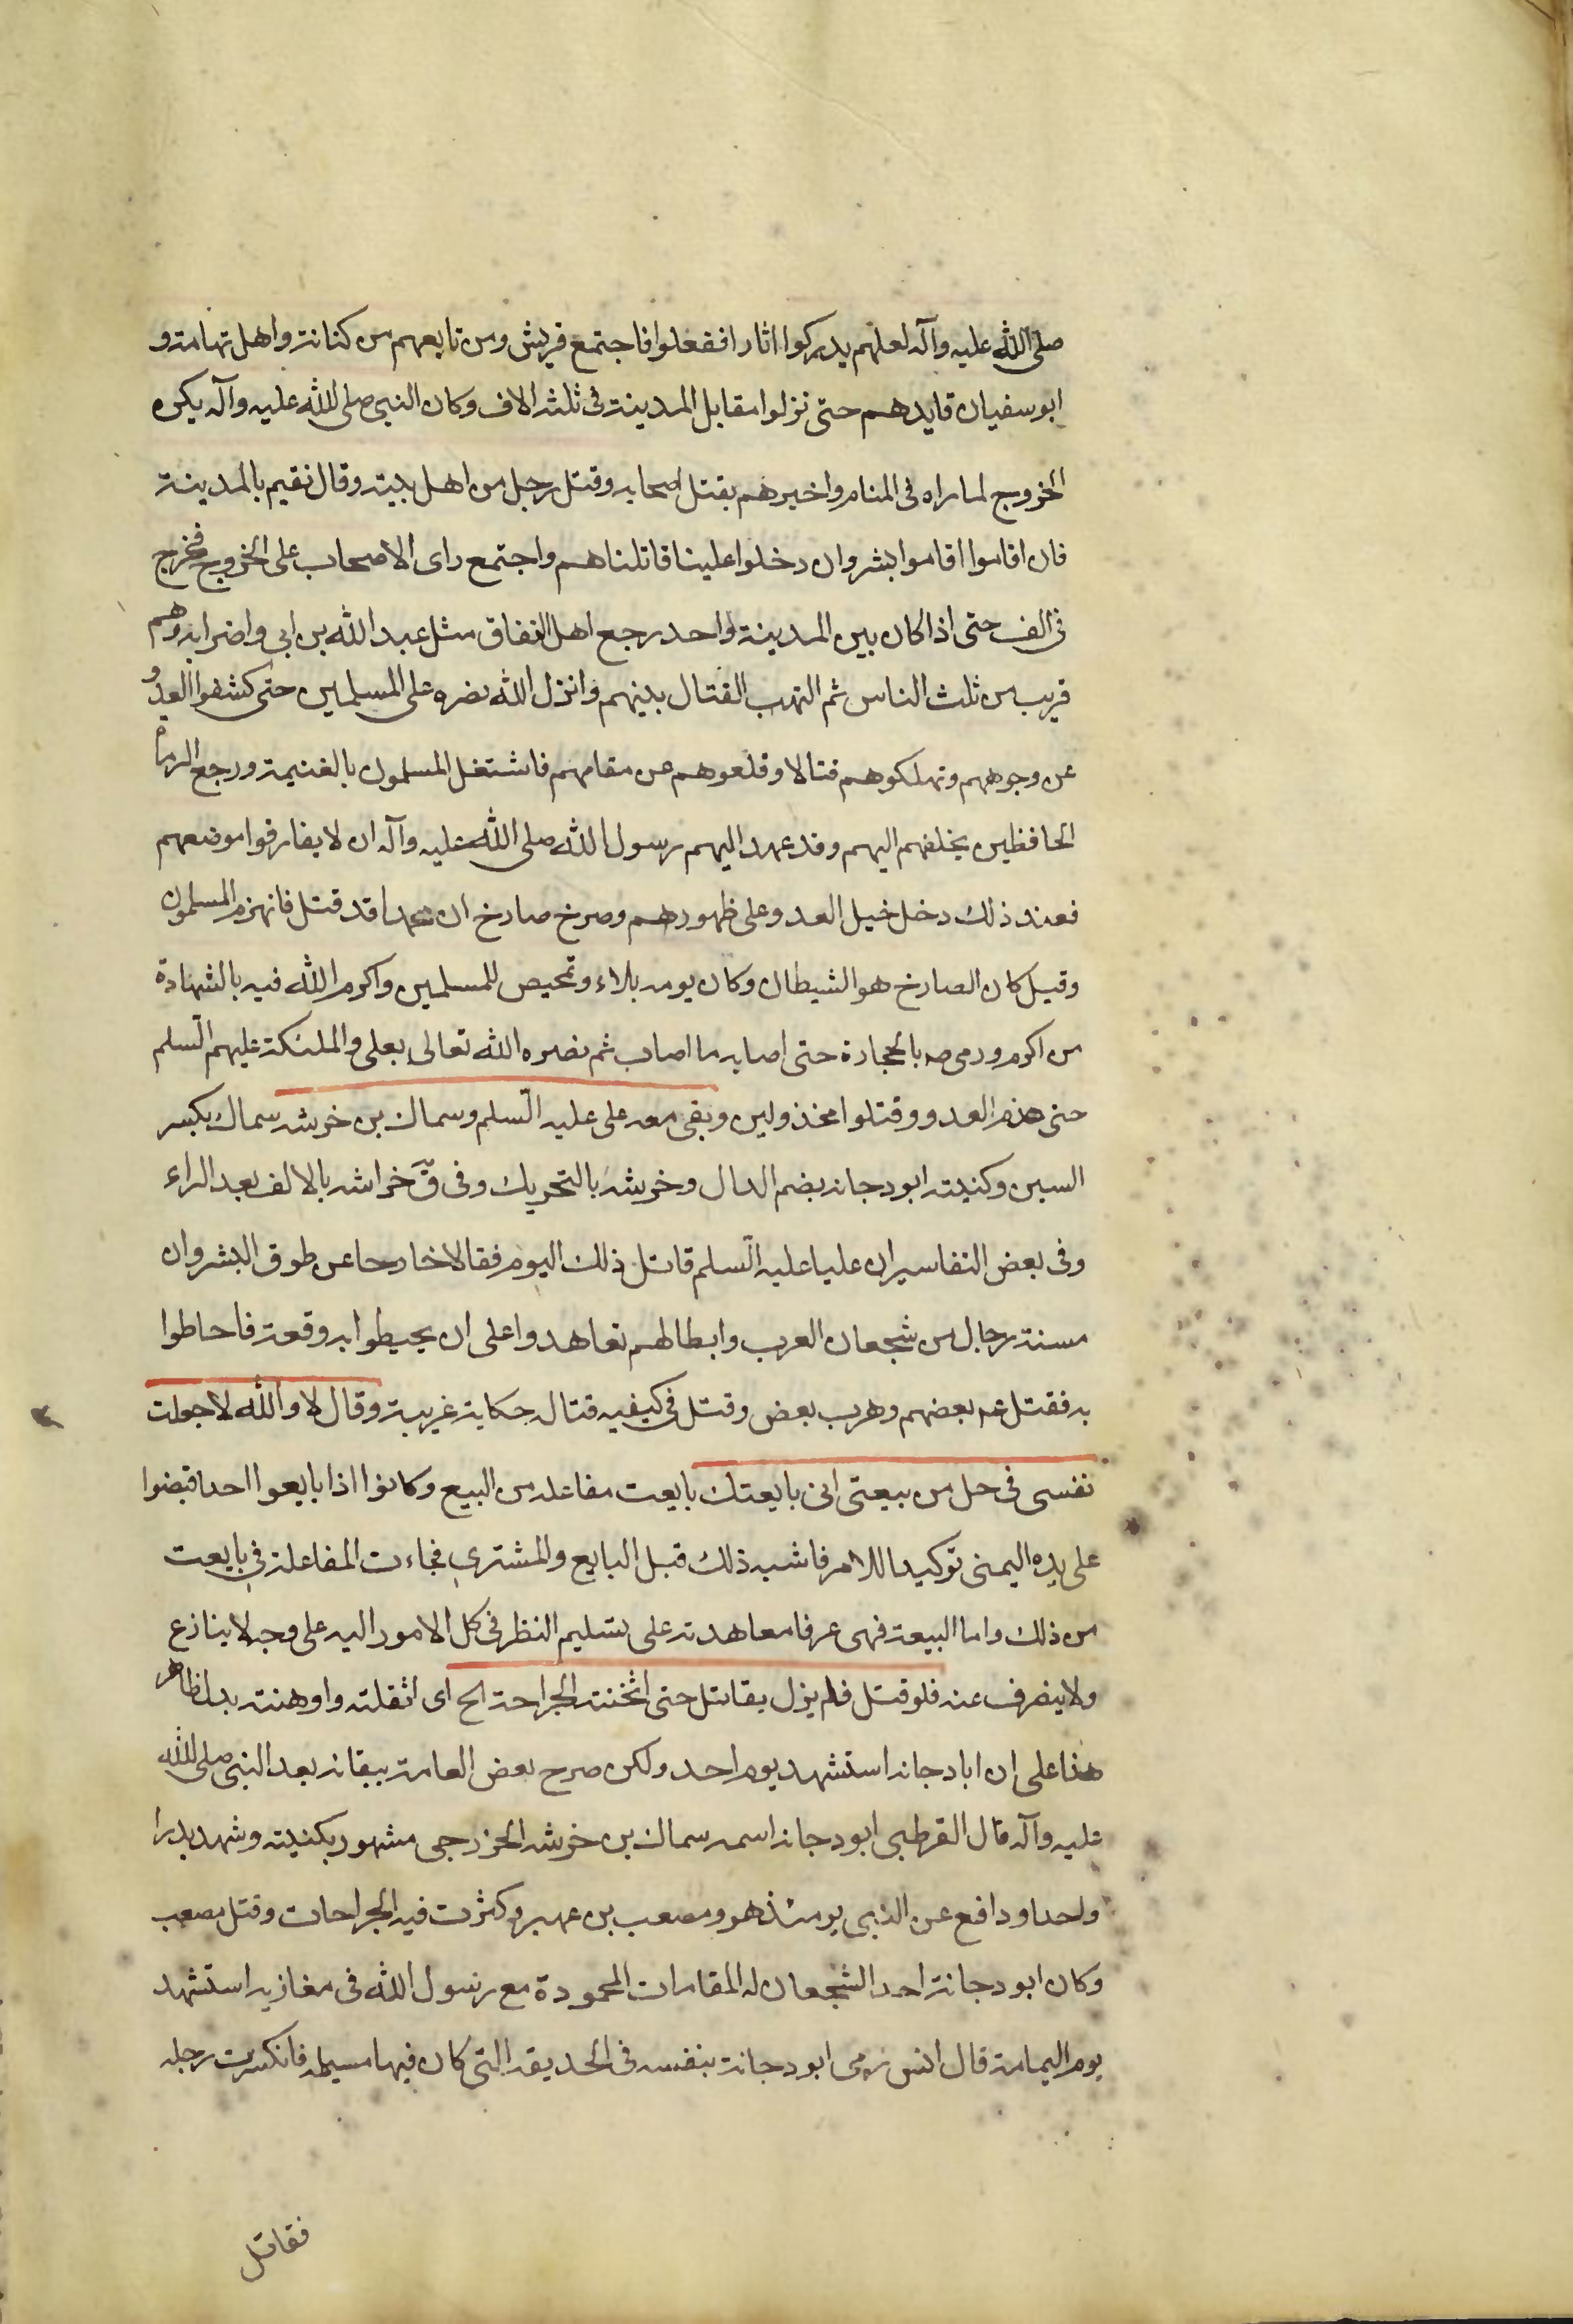 صلى الله عليه وآله لعلهم يدركوا اثارا ففعلوا فاجتمع قريش ومن تابعهم من كنانة واهل تهامة و
ابو سفيان قايدهم حتى نزلوا مقابل المدينة فى ثلثه الاف وكان النبى صلى الله عليه وآله يكره
الخروج لما راه فى المنام واخبرهم بقتل اصحابه وقتل رجل من اهل بيته وقال نقيم بالمدينة
فان اقاموا اقاموا بشر وان دخلوا علينا قاتلناهم واجتمع راى الاصحاب على الخروج فخرج
فى الف حتى اذا كان بين المدينة واحد رجع اهل النفاق مثل عبد الله بن ابى واضرابه وهم
قريب من ثلث الناس ثم التهب القتال بينهم وانزل الله نصره على المسلمين حتى كشفوا العدو
عن وجوههم ونهلكوهم قتالا وقلعوهم عن مقامهم فاشتغل المسلمون بالغنيمة ورجع الرماة
الحافظين بخلفهم اليهم وقد عهد اليهم رسول الله صلى الله عليه وآله ان لا يفارقوا موضعهم
فعند ذلك دخل خيل العدو على ظهورهم وصرخ صارخ ان محمدا قد قتل فانهزم المسلمون
وقيل كان الصارخ هو الشيطان وكان يومه بلاء وتمحيص للمسلمين واكرم الله فيه بالشهادة
من اكرم ورمى صه بالحجارة حتى اصابه ما اصاب ثم نصره الله تعالى بعلى والملئكة عليهم السلم
حتى هزم العدو وقتلوا مخذولين وبقى معه على عليه السلم وسماك بن خرشه سماك بكسر
السين وكنيته ابو دجانه بضم الدال وخرشة بالتحريك وفى ق خراشه بالالف بعد الراء
وفى بعض التفاسير ان عليا عليه السلم قاتل ذلك اليوم فقالا خارجا عن طوق البشر وان
مسنة رجال من شجعان العرب وابطالهم تعاهدوا على ان يحيطوا به وقعة فاحاطوا
به فقتل عم بعضهم وهرب بعض وقتل فى كيفيه قتاله حكاية غريبة وقال لا والله لا جعلت
نفسى فى حل من بيعتى انى بايعتك بايعت مفاعله من البيع وكانوا اذا بايعوا احدا قبضوا
على يده اليمنى توكيدا للامر فاشبه ذلك قبل البايع والمشترى فجاءت المفاعلة فى بايعت
من ذلك واما البيعة فهى عرفا معاهدته على تسليم النظر فى كل الامور اليه على وجه لا ينازع
ولا ينصرف عنه فلو قتل فلم يزل يقاتل حتى اثخنته الجراحة الح اى اثقلته واوهنته يدل ظاهر
هذا على ان ابا دجانه استشهد يوم احد ولكن صرح بعض العامة ببقائه بعد النبى صلى الله
عليه وآله قال القرطبى ابو دجانه اسمه سماك بن خرشه الخزرجى مشهور بكنيته وشهد بدرا
واحدا ودافع عن النبى يومئذ هو ومصعب بن عمير وكثرت فيه الجراحات وقتل مصعب
وكان ابو دجانة احد الشجعان له المقامات المحمودة مع رسول الله فى مغازيه استشهد
يوم اليمامة قال انس رمى ابو دجانة بنفسه فى الحديقه التى كان فيها مسيلمه فانكسرت رجله
فقاتل